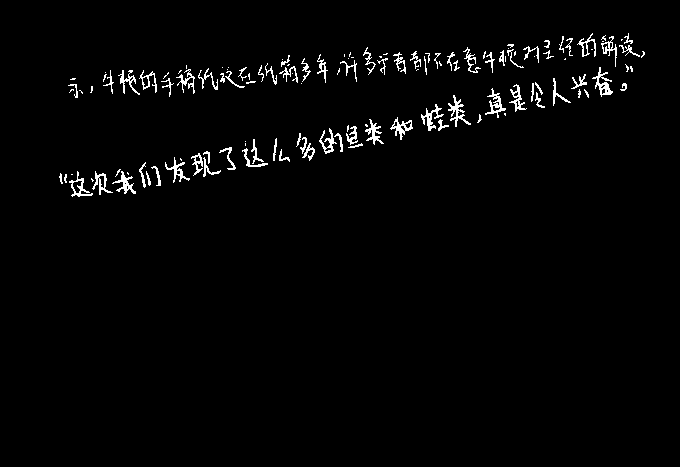 示，牛顿的手稿被放在纸箱多年，许多学者都不在意牛顿对圣经的解读，
“这次我们发现了这么多的鱼类和蛙类，真是令人兴奋。”